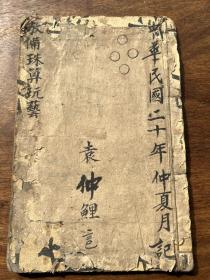 中華民國二十年仲夏月記
袁仲鯉置
備珠算玩藝